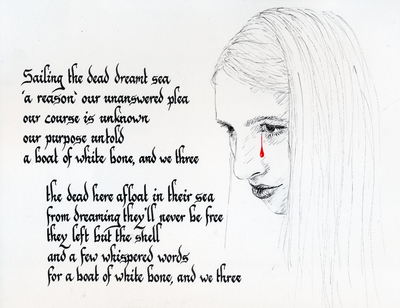 Sailing the dead dreamt sea
'a reason' our unanswered plea
our course is unknown
our purpose untold
a boat of white bone, and we three
the dead here afloat in their sea
from dreaming they'll never be free
they left but the shell
and a few whispered words
for a boat of white bone, and we three